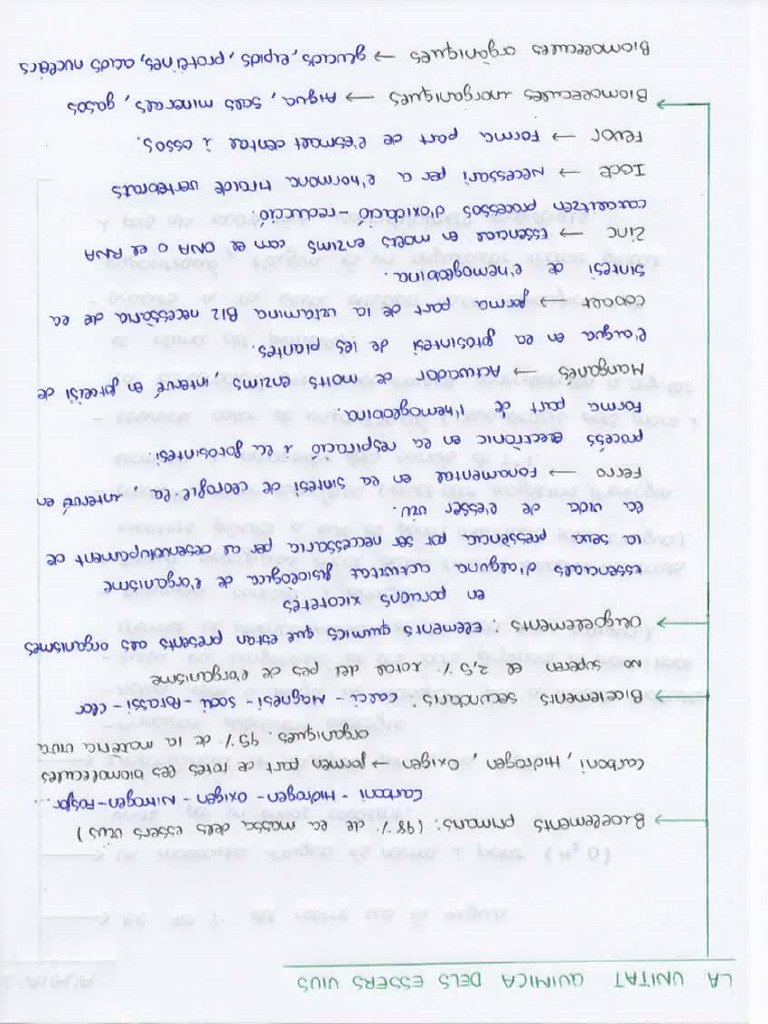 LA UNITAT QUIMICA DELS ESSERS VIUS
Bioelements primaris: (98% de la massa dels essers vius)
Carboni - Hidrogen - Oxigen - Nitrogen - Fosfor...
Carboni, Hidrogen, Oxigen → formen part de totes les biomolecules
orgàniques. 95% de la matèria viva
Bioelements secundaris: Calci - Magnesi - Sodi - Potassi - Clor
No superen el 2,5% total del pes de l'organisme
Oligoelements: Elements quimics que estan presents als organismes
en porcions xicotetes
essencials d'alguna activitat fisiologica de l'organisme
la seua presència por ser necessaria per al desenvolupament de
la vida de l'esser viu.
Ferro → Fonamental en la sintesi de clorofil·la, intervé en
procés electronic en la respiració i la fotosintesi.
Forma part de l'hemoglobina.
Manganés → Actuador de molts enzims, intervé en procési de
l'aigua en la fotosintesi de les plantes.
Cobalt → forma part de la vitamina B12 necessària de la
sintesi de l'hemoglobina.
Zinc → Essencial en molts enzims com el DNA o el RNA
catalitzen processos d'oxidació-reducció.
Iode → Necessari per a l'hormona tiroide vertebrats
Fluor → Forma part de l'esmalt dental i ossos.
Biomolecules inorganiques → Aigua, sals minerals, gasos
Biomolecules orgàniques → glucids, lipids, protéines, acids nucleics